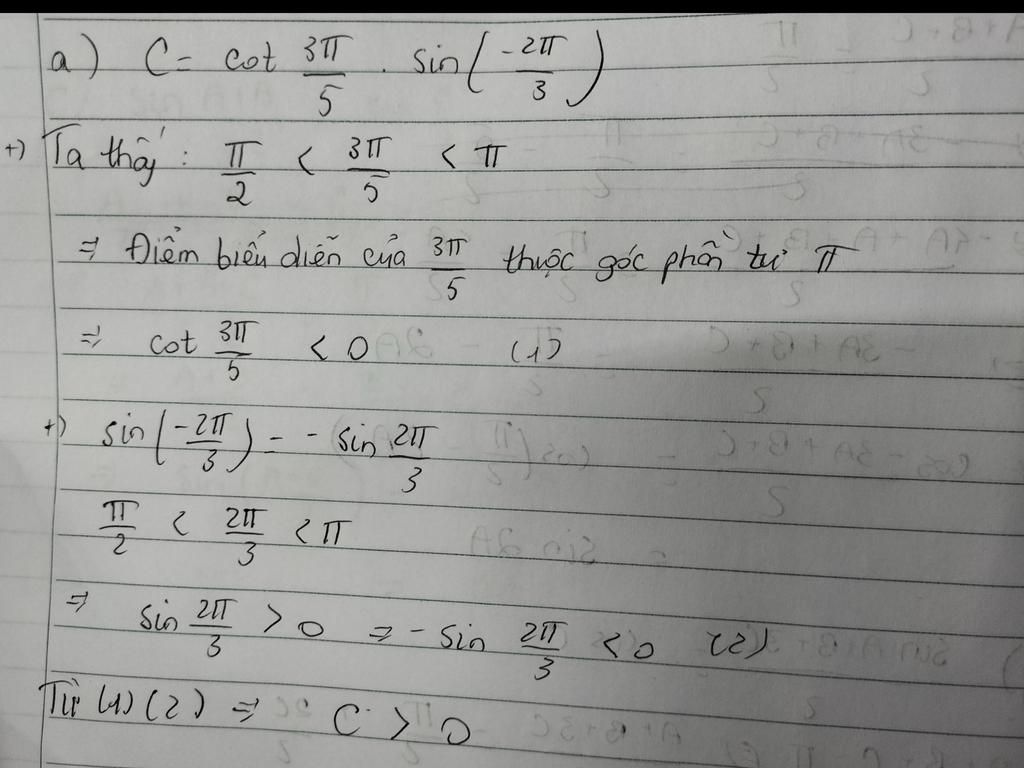 a) C = cot 3π/5 . sin(-2π/3)
+) Ta thấy : π/2 < 3π/5 < π
=> Điểm biểu diễn của 3π/5 thuộc góc phần tư II
=> cot 3π/5 < 0 (1)
+) sin(-2π/3) = - sin 2π/3
π/2 < 2π/3 < π
=> sin 2π/3 > 0 => - sin 2π/3 < 0 (2)
Từ (1) (2) => C > 0